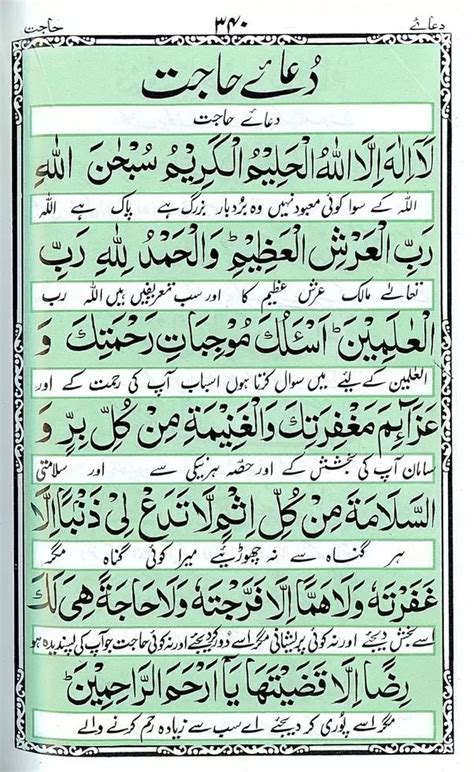 دعائے ۳۴۰ حاجت
دُعائے حاجت
دعائے حاجت
لَآ اِلٰهَ اِلَّا اللهُ الْحَلِيْمُ الْكَرِيْمُ سُبْحٰنَ اللهِ
اللہ کے سوا کوئی معبود نہیں وہ بردبار بزرگ ہے پاک ہے اللہ
رَبِّ الْعَرْشِ الْعَظِيْمِ ؕ وَالْحَمْدُ لِلّٰهِ رَبِّ
تعالےٰ مالک عرش عظیم کا اور سب تعریفیں ہیں اللہ رب
الْعٰلَمِيْنَ ؕ اَسْئَلُكَ مُوْجِبَاتِ رَحْمَتِكَ وَ
العٰلمین کے لیئے میں سوال کرتا ہوں اسباب آپ کی رحمت کے اور
عَزَآئِمَ مَغْفِرَتِكَ وَالْغَنِيْمَةَ مِنْ كُلِّ بِرٍّ وَ
سامان آپ کی بخشش کے اور حصّہ ہر نیکی سے اور سلامتی
السَّلَامَةَ مِنْ كُلِّ اِثْمٍ لَّا تَدَعْ لِيْ ذَنْبًا اِلَّا
ہر گناہ سے نہ چھوڑیئے میرا کوئی گناہ مگر
غَفَرْتَهٗ وَلَا هَمًّا اِلَّا فَرَّجْتَهٗ وَلَا حَاجَةً هِىَ لَكَ
اسے بخش دیجئے اور نہ کوئی پریشانی مگر اسے دور کر دیجئے اور نہ کوئی حاجت جو آپ کی پسندیدہ ہو
رِضًا اِلَّا قَضَيْتَهَا يَآ اَرْحَمَ الرَّاحِمِيْنَ ؕ
مگر اسے پوری کر دیجئے اے سب سے زیادہ رحم کرنے والے